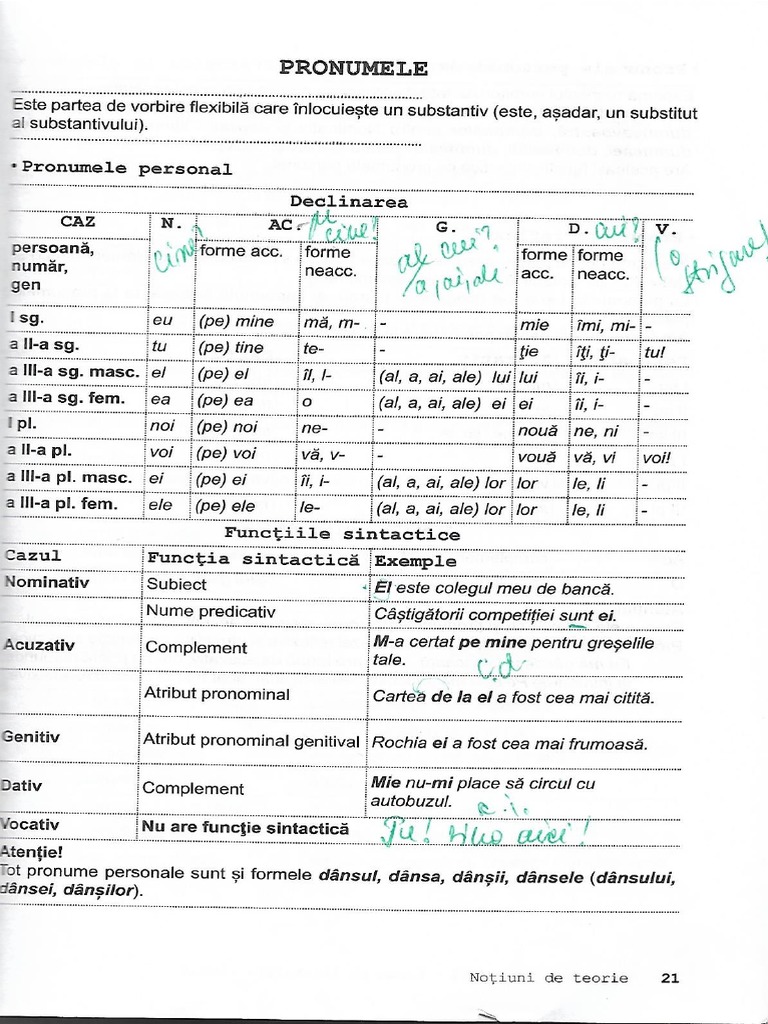 PRONUMELE
Este partea de vorbire flexibilă care înlocuiește un substantiv (este, așadar, un substitut
al substantivului).
• Pronumele personal
Declinarea
CAZ N. AC. cine! G. D. cui? V.
persoană, număr, gen cine? forme acc. forme neacc. al cui? a, ai, ale forme acc. forme neacc. (o strigare!
I sg. eu (pe) mine mă, m- - mie îmi, mi- -
a II-a sg. tu (pe) tine te- - ţie îţi, ţi- tu!
a III-a sg. masc. el (pe) el îl, l- (al, a, ai, ale) lui lui îi, i- -
a III-a sg. fem. ea (pe) ea o (al, a, ai, ale) ei ei îi, i- -
I pl. noi (pe) noi ne- - nouă ne, ni -
a II-a pl. voi (pe) voi vă, v- - vouă vă, vi voi!
a III-a pl. masc. ei (pe) ei îi, i- (al, a, ai, ale) lor lor le, li -
a III-a pl. fem. ele (pe) ele le- (al, a, ai, ale) lor lor le, li -
Funcţiile sintactice
Cazul Funcţia sintactică Exemple
Nominativ Subiect El este colegul meu de bancă.
Nume predicativ Câștigătorii competiției sunt ei.
Acuzativ Complement M-a certat pe mine pentru greșelile
tale.
c.d
Atribut pronominal Cartea de la el a fost cea mai citită.
Genitiv Atribut pronominal genitival Rochia ei a fost cea mai frumoasă.
Dativ Complement Mie nu-mi place să circul cu
autobuzul.
c.i.
Vocativ Nu are funcţie sintactică Tu! vino aici!
Atenție!
Tot pronume personale sunt și formele dânsul, dânsa, dânșii, dânsele (dânsului,
dânsei, dânșilor).
Noțiuni de teorie 21